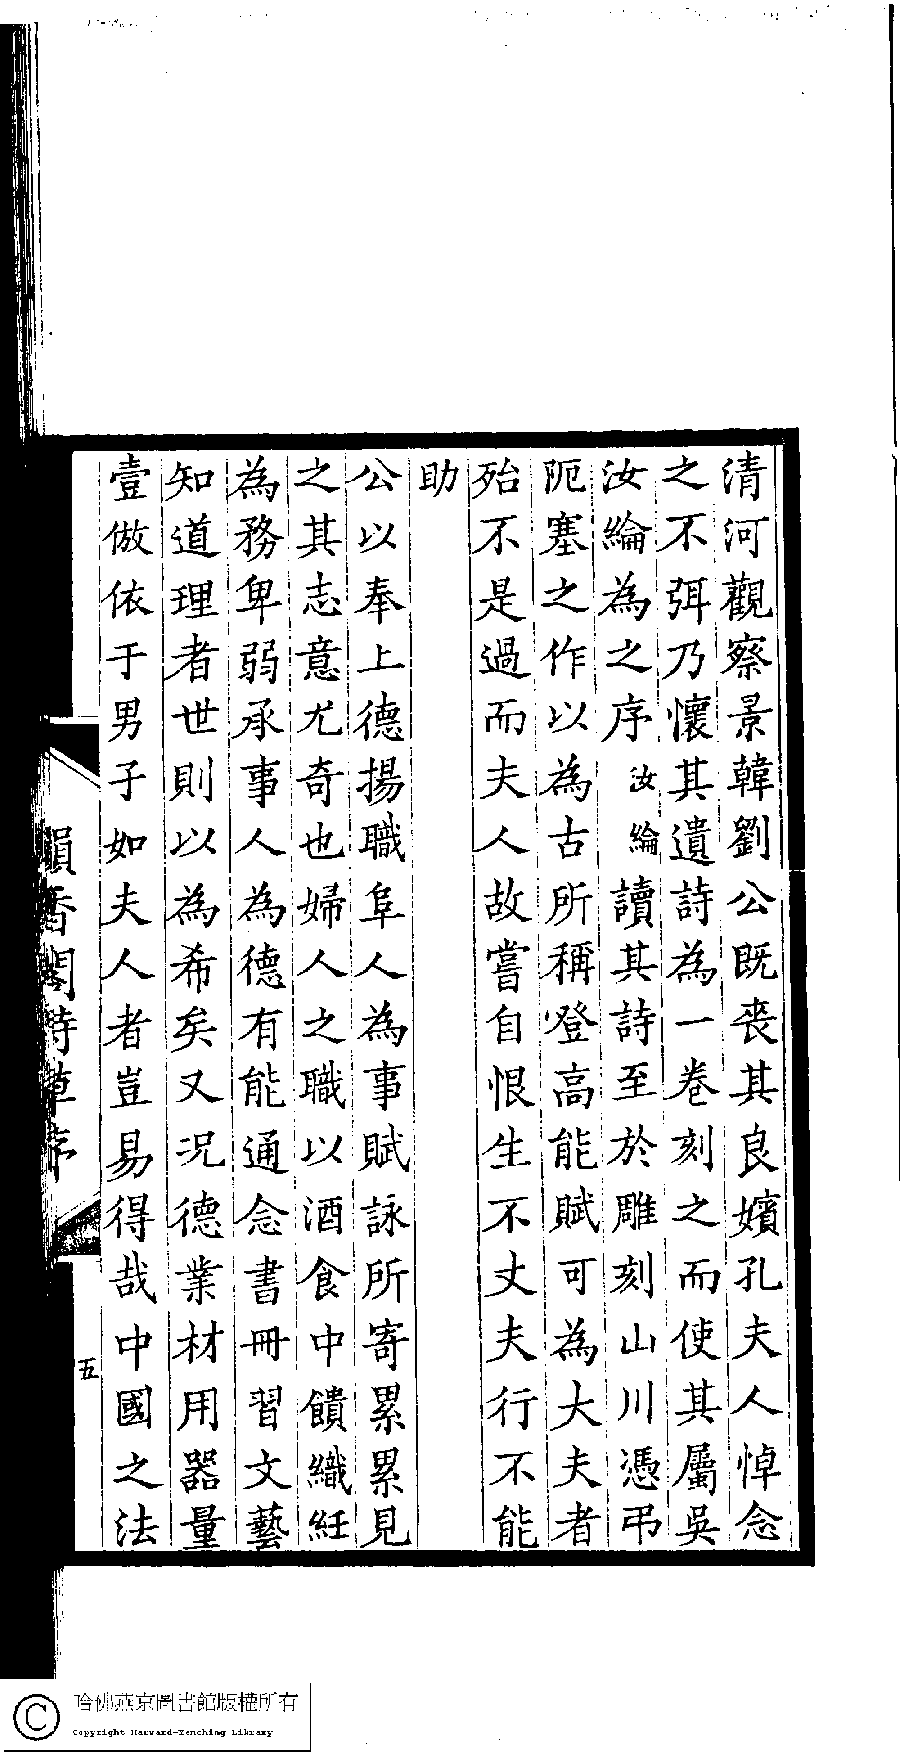 清河觀察景韓劉公既喪其良嬪孔夫人悼念
之不弭乃懷其遺詩為一卷刻之而使其屬吳
汝綸為之序汝綸讀其詩至於雕刻山川憑弔
阨塞之作以為古所稱登高能賦可為大夫者
殆不是過而夫人故嘗自恨生不丈夫行不能
助
公以奉上德揚職阜人為事賦詠所寄累累見
之其志意尤奇也婦人之職以酒食中饋織紝
為務卑弱承事人為德有能通念書冊習文藝
知道理者世則以為希矣又況德業材用器量
壹倣依于男子如夫人者豈易得哉中國之法
韻香閣詩草序
五
哈佛燕京圖書館版權所有
Copyright Harvard-Yenching Library